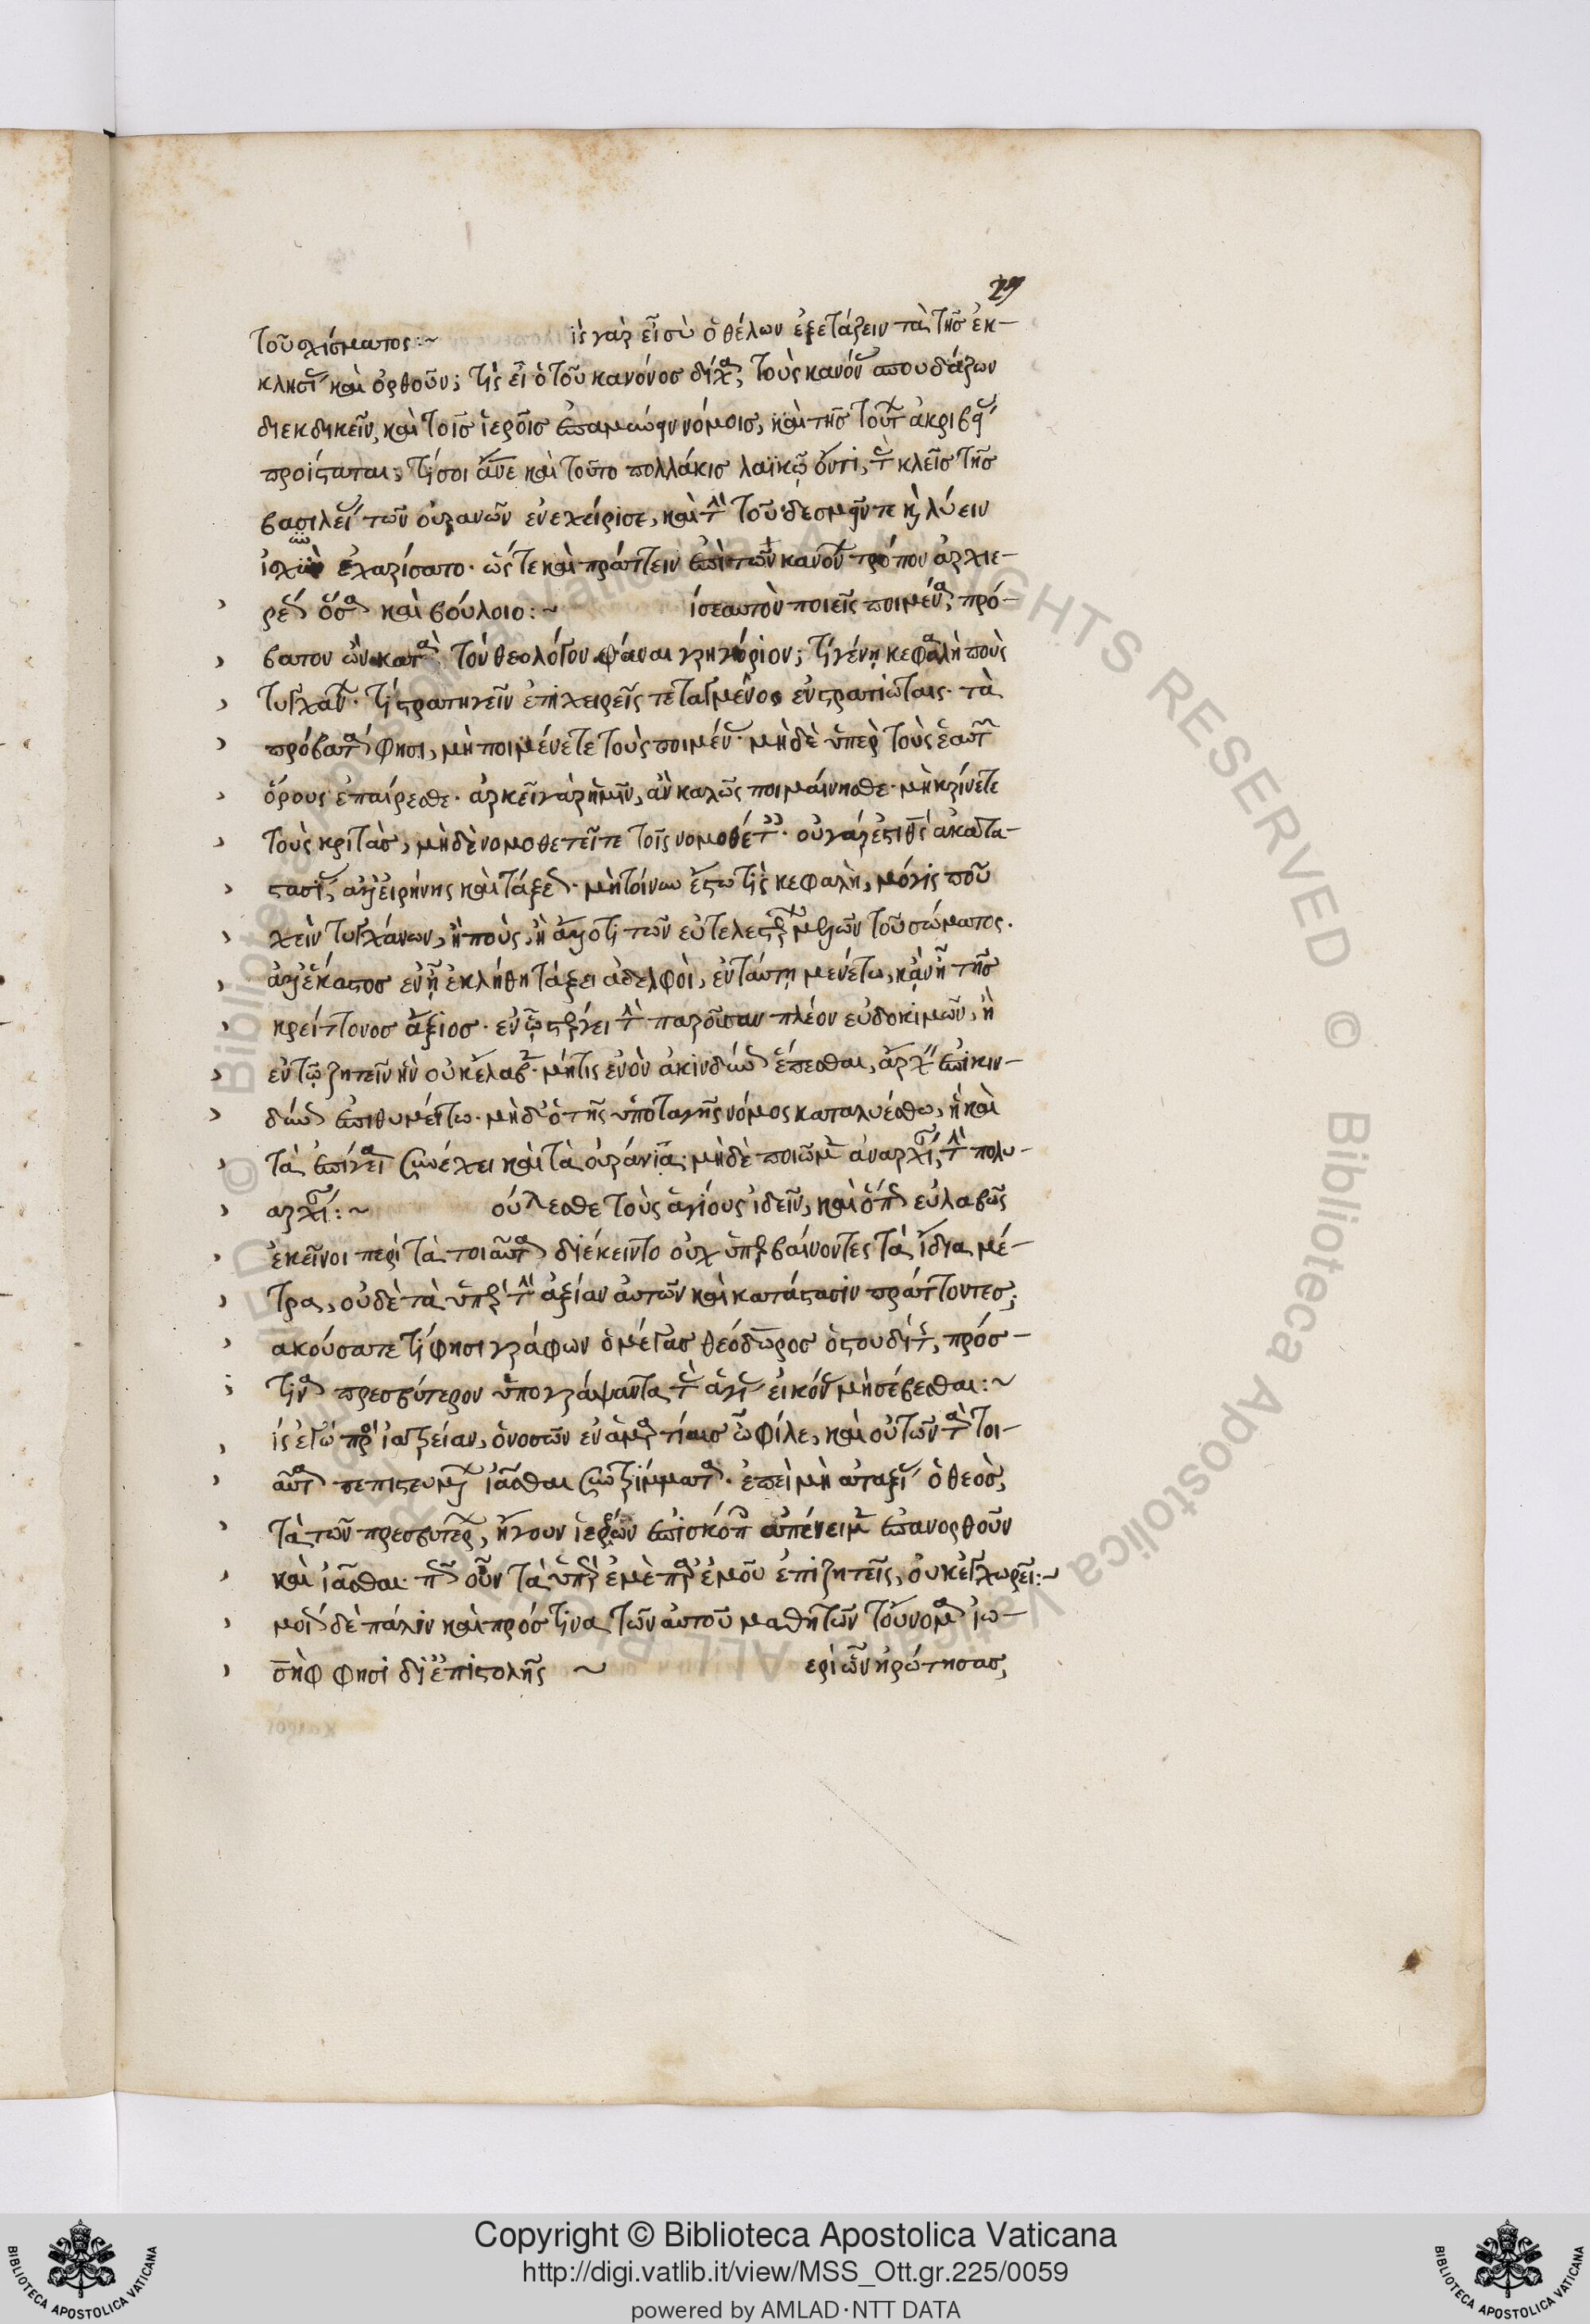 29
τοῦ σχίσματος:~ ἰς γὰρ εἶ σὺ ὁ θέλων ἐξετάζειν τὰ τῆς ἐκ-
κλησί καὶ ὀρθοῦν; τίς εἶ ὁ τοῦ κανόνος δίχα; τοὺς κανόν σπουδάζων
διεκδικεῖν, καὶ τοῖς ἱεροῖς νόμοις, καὶ τῆς τούτ ἀκριβ
προΐσταται; τίς σοι ἄνε καὶ τοῦτο πολλάκις λαϊκῷ ὄντι, τ κλεῖς τῆς
βασιλεί τῶν οὐρανῶν ἐνεχείρισε, καὶ τὴν τοῦ δεσμεῖν τε καὶ λύειν
ἰσχὺν ἐχαρίσατο· ὥστε καὶ πράττειν ἐπὶ τῶν κανόν τρόπον ἀρχιε-
ρέ ὅσα καὶ βούλοιο:~ ί σεαυτὸν ποιεῖς ποιμένα; πρό-
βατον ὢν κατὰ τὸν θεολόγον φάναι γρηγόριον; τί γένῃ κεφαλὴ ποὺς
τυγχάν· τί στρατηγεῖν ἐπιχειρεῖς τεταγμένος ἐν στρατιώταις· τὰ
πρόβατά φησι, μὴ ποιμένετε τοὺς ποιμέν· μηδὲ ὑπὲρ τοὺς ἑαυτ
ὅρους ἐπαίρεσθε· ἀρκεῖ γὰρ ἡμῖν, ἂν καλῶς ποιμαίνησθε· μὴ κρίνετε
τοὺς κριτάς, μὴ δὲ νομοθετεῖτε τοῖς νομοθέτ· οὐ γάρ ἐστι θς ἀκατα-
στασί, ἀλλ εἰρήνης καὶ τάξε· μὴ τοίνυν ἔστω τίς κεφαλή, μόλις που
χεὶρ τυγχάνων, ἢ ποὺς, ἢ ἄλλό τι τῶν εὐτελεστέρ μελῶν τοῦ σώματος.
ἀλλ ἕκαστος ἐν ᾗ ἐκλήθη τάξει ἀδελφοὶ, ἐν ταύτῃ μενέτω, κἂν ᾖ τῆς
κρείττονος ἄξιος· ἐν ᾧ στέργει τὴν παροῦσαν πλέον εὐδοκιμῶν, ἢ
ἐν τῷ ζητεῖν ἣν οὐκ ἔλαβ· μή τις ἐνὸν ἀκινδύν ἕπεσθαι, ἄρχ ἐπικιν-
δύν ἐπιθυμείτω· μὴ δ ὁ τῆς ὑποταγῆς νόμος καταλυέσθω, ἢ καὶ
τὰ ἐπίγεια συνέχει καὶ τὰ οὐράνια· μὴ δὲ ποιῶμ ἀναρχί, τὴν πολυ-
αρχί:~ ούλεσθε τοὺς ἁγίους ἰδεῖν, καὶ ὅπ εὐλαβῶς
ἐκεῖνοι περὶ τὰ τοιαῦτα διέκειντο οὐχ ὑπερβαίνοντες τὰ ἴδια μέ-
τρα, οὐδὲ τὰ ὑπὲρ τὴν ἀξίαν αὐτῶν καὶ κατάστασιν πράττοντες;
ἀκούσατε τί φησι γράφων ὁ μέγας θεόδωρος ὁ στουδίτ, πρός-
τινα πρεσβύτερον ὑπογράψαντα τ ἁγί εἰκόν μὴ σέβεσθαι:~
ίς ἐγώ πρ ἰατρείαν, ὁ νοσῶν ἐν ἁμαρτίαις ὦ φίλε, καὶ οὔτ ὢν τὰ τοι-
αῦτα πεπιστευμ ἰᾶσθαι συντρίμματα· ἐπεὶ μὴ ἀταξί ὁ θεός,
τὰ τῶν πρεσβυτέρ, ἤγουν ἱερέων ἐπισκόπ ἀπένειμ ἐπανορθοῦν
καὶ ἰᾶσθαι· π οὖν τὰ ὑπὲρ ἐμὲ παρ ἐμοῦ ἐπιζητεῖς, οὐκ ἐγχωρεῖ:~
μοί δὲ πάλιν καὶ πρός τινα τῶν αὐτοῦ μαθητῶν τοὔνομα ἰω-
σὴφ φησὶ δι ἐπιστολῆς ~ ερὶ ὧν ἠρώτησας,
Copyright © Biblioteca Apostolica Vaticana
http://digi.vatlib.it/view/MSS_Ott.gr.225/0059
powered by AMLAD·NTT DATA
BIBLIOTECA APOSTOLICA VATICANA
BIBLIOTECA APOSTOLICA VATICANA